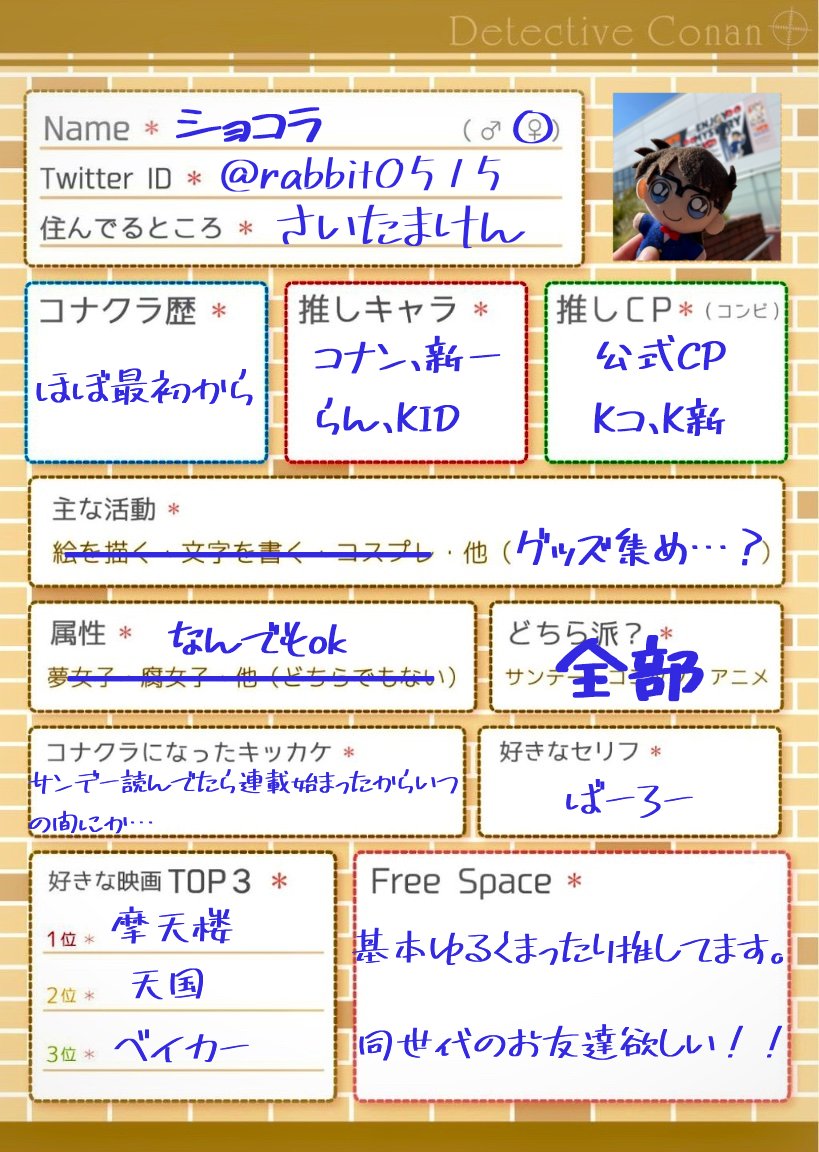 Detective Conan
Name * ショコラ (♂ ♀)
Twitter ID * @rabbit0515
住んでるところ * さいたまけん
コナクラ歴 *
ほぼ最初から
推しキャラ *
コナン、新一
らん、KID
推しCP* (コンビ)
公式CP
Kコ、K新
主な活動 *
絵を描く・文字を書く・コスプレ・他(グッズ集め…?)
属性 * なんでもok
夢女子・腐女子・他(どちらでもない)
どちら派? *
全部
サンデー アニメ
コナクラになったキッカケ *
サンデー読んでたら連載始まったからいつ
の間にか…
好きなセリフ *
ばーろー
好きな映画TOP3 *
1位 * 摩天楼
2位 * 天国
3位 * ベイカー
Free Space *
基本ゆるくまったり推してます。
同世代のお友達欲しい!!